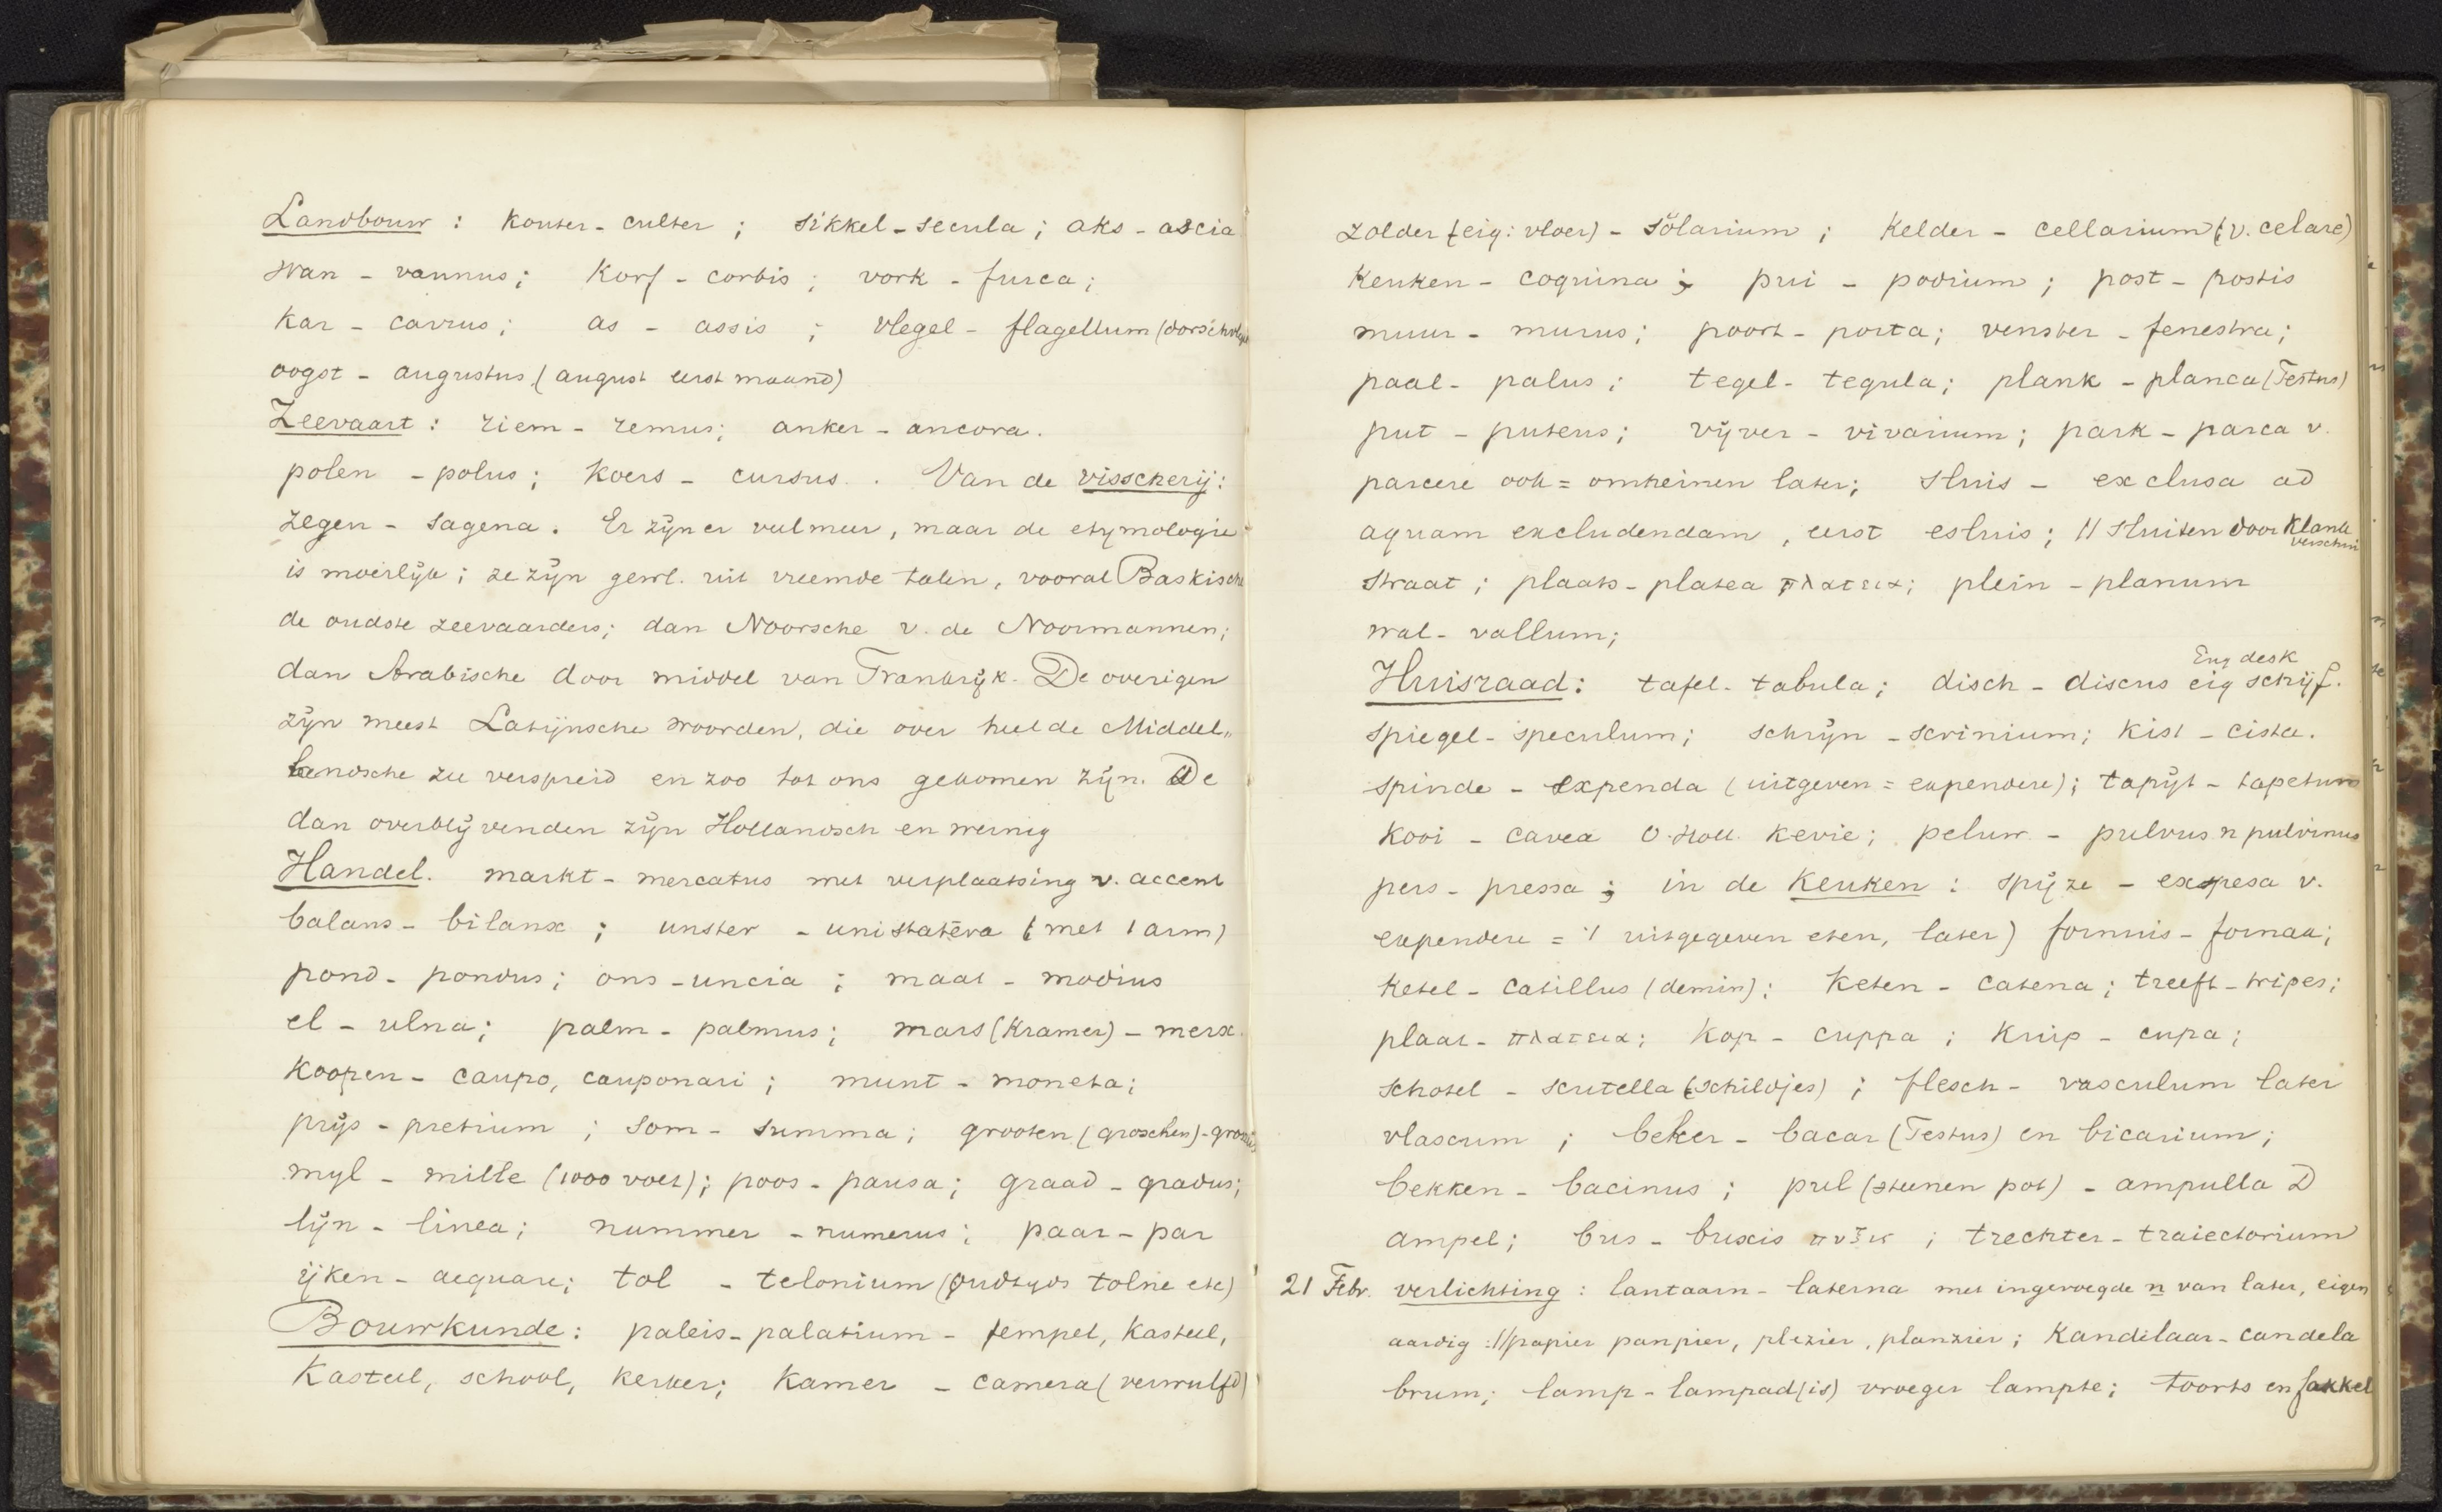 Landbouw : kouter - culter ; sikkel - secula ; aks - ascia
wan - vannus ; korf - corbis ; vork - furca ;
kar - carrus ; as - assis ; vlegel - flagellum (dorschvlegel
oogst - augustus (august eerst maand)
Zeevaart : riem - remus ; anker - ancora .
polen - polus ; koers - cursus . Van de visscherij :
zegen - sagena . Er zijn er veel meer, maar de etymologie
is moeilijk ; ze zijn gewl. uit vreemde talen, vooral Baskische
de oudste zeevaarders ; dan Noorsche v. de Noormannen ;
dan Arabische door middel van Frankrijk . De overigen
zijn meest Latijnsche woorden, die over heel de Middel„
landsche zee verspreid en zoo tot ons gekomen zijn . De
dan overblijvenden zijn Hollandsch en weinig
Handel . markt - mercatus met verplaatsing v. accent
balans - bilanx ; unster - unistatēra (met 1 arm)
pond - pondus ; ons - uncia ; maat - modius
el - ulna ; palm - palmus ; mars (kramer) - merx .
koopen - caupo, cauponari ; munt - moneta ;
prijs - pretium ; som - summa ; grooten (groschen) - grossus
myl - mille (1000 voet) ; poos - pausa ; graad - gradus ;
lijn - linea ; nummer - numerus ; paar - par
ijken - aequare ; tol - telonium (oudtyds tolne etc)
Bouwkunde : paleis - palatium - tempel, kasteel,
Kasteel, school, kerker ; kamer - camera (verwulfd)
zolder (eig : vloer) - sōlarium ; kelder - cellarium (v. celare)
keuken - coquina ; pui - podium ; post - postis
muur - murus ; poort - porta ; venster - fenestra ;
paal - palus ; tegel - tegula ; plank - planca (Festus)
put - puteus ; vijver - vivarium ; park - parca v.
parcere ook = omheinen later ; sluis - exclusa ad
aquam excludendam , eerst esluis ; // sluiten door klank
verschui
straat ; plaats - platea πλατεια ; plein - planum
wal - vallum ;
Eng desk
Huisraad : tafel - tabula ; disch - discus eig schijf .
spiegel - speculum ; schrijn - scrinium ; kist - cista .
spinde - expenda (uitgeven = expendere) ; tapijt - tapetum
kooi - cavea O. Holl. kevie ; peluw - pulvus n pulvinus
pers - pressa ; in de keuken : spijze - expesa v.
expendere = 't uitgegeven eten, later) fornuis - fornax ;
ketel - catillus (demin) ; keten - catena ; treeft - tripes ;
plaat - πλατεια ; kop - cuppa ; kuip - cupa ;
schotel - scutella (schildjes) ; flesch - vasculum later
vlascum ; beker - bacar (Festus) en bicarium ;
bekken - bacinus ; pul (steenen pot) - ampulla D
ampel ; bus - buxis πυξις ; trechter - traiectorium
21 Febr. verlichting : lantaarn - laterna met ingevoegde n van later, eigen
aardig : // papier panpier, plezier, planzier ; kandelaar - candela
brum ; lamp - lampad(is) vroeger lampte ; toorts en fakkel